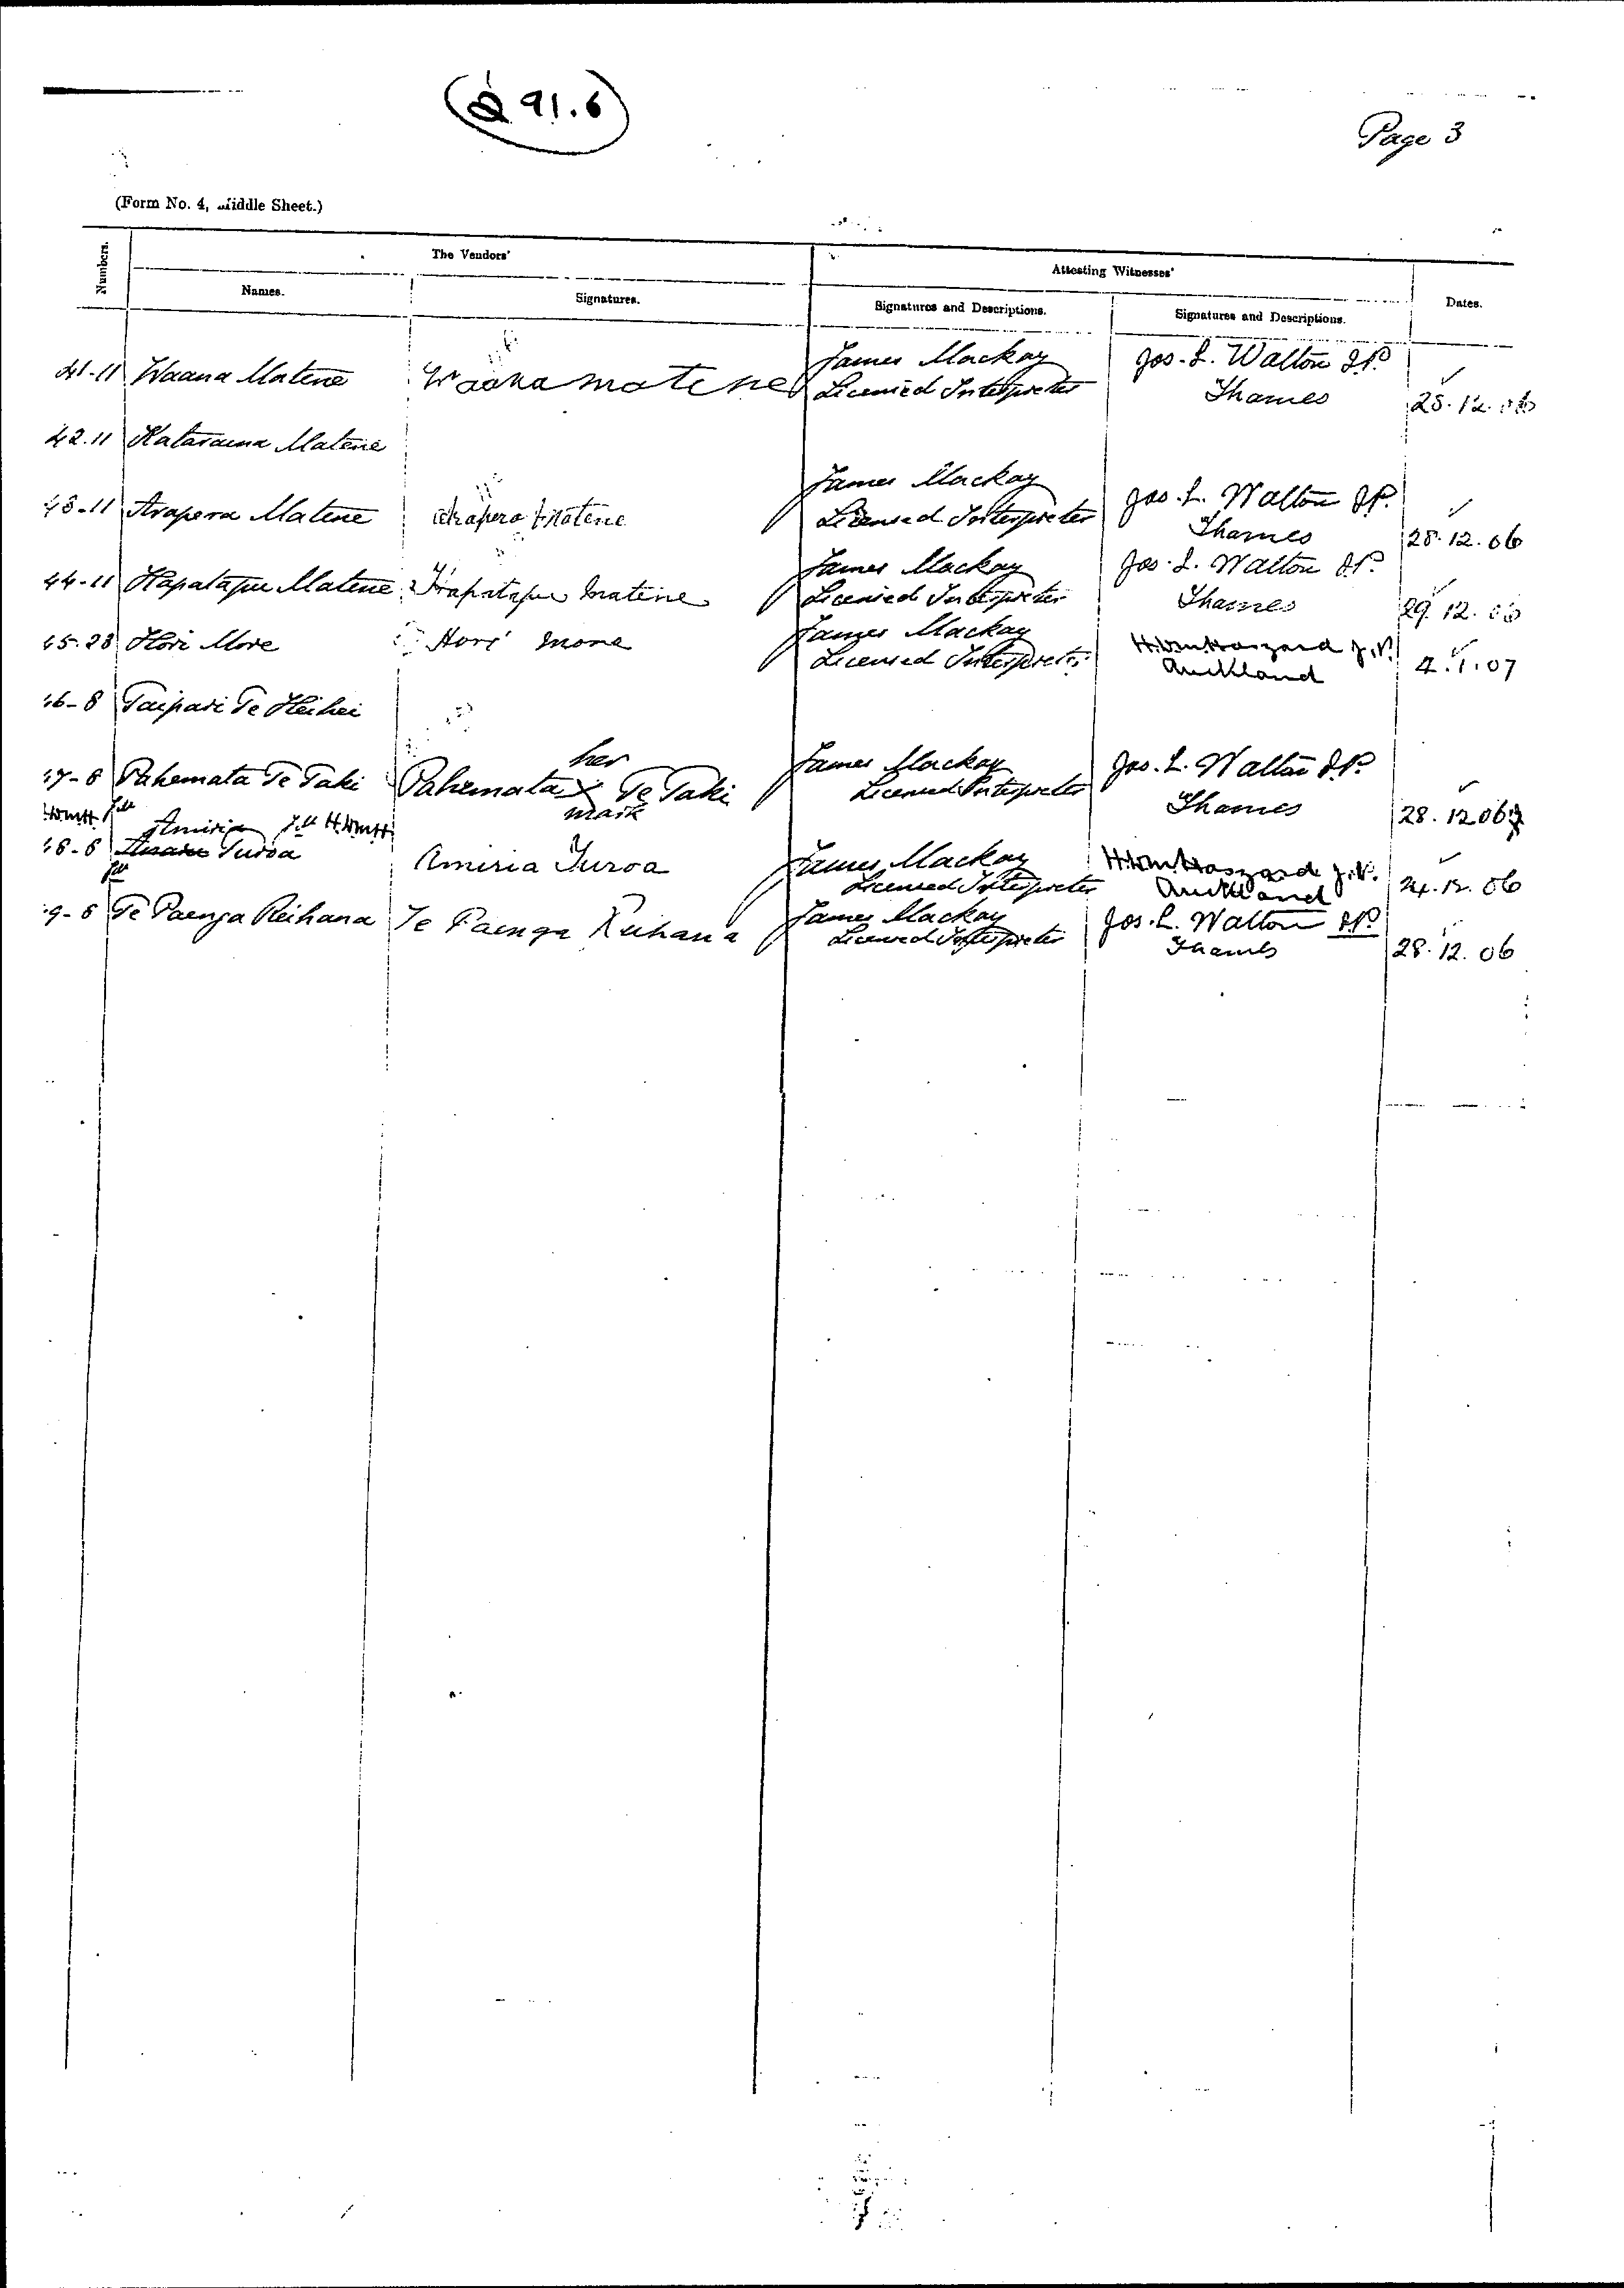 Q 91.6
Page 3
(Form No. 4, Middle Sheet.)
Numbers. The Vendors' Attesting Witnesses' Dates.
Names. Signatures. Signatures and Descriptions. Signatures and Descriptions.
41-11 Waana Matene Waana matene James Mackay Jos. L. Walton J.P.
Licensed Interpreter Thames 28.12.06
42.11 Kataraina Matene
43-11 Arapera Matene Arapera Matene James Mackay Jos. L. Walton J.P.
Licensed Interpreter Thames 28.12.06
44-11 Hapatapu Matene Hapatapu Matene James Mackay Jos. L. Walton J.P.
Licensed Interpreter Thames 29.12.06
45.28 Hori More Hori more James Mackay J.P.
Licensed Interpreter Auckland 4.1.07
46-8 Taipari Te Heihei
47-8 Pahemata Te Taki Pahemata her X mark Te Taki James Mackay Jos. L. Walton J.P.
Licensed Interpreter Thames 28.12.06
Amiria
48-8 Turoa Amiria Turoa James Mackay J.P.
Licensed Interpreter Auckland 24.12.06
49-8 Te Paenga Reihana Te Paenga Reihana James Mackay Jos. L. Walton J.P.
Licensed Interpreter Thames 28.12.06